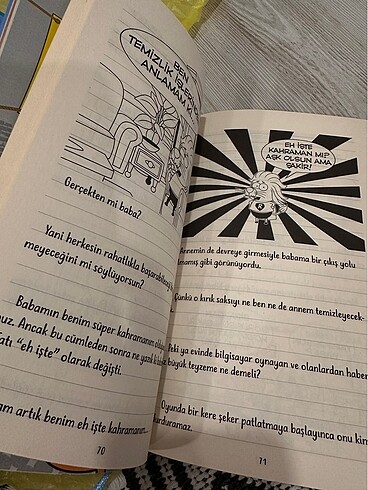 BEN
TEMİZLİK
ANLAMAM
Gerçekten mi baba?
Yani herkesin rahatlıkla
meyeceğini mi söylüyorsun?
Babamın benim süper kahramanım
Ancak bu cümleden sonra ne yazık
"eh işte" olarak değişti.
artık benim eh işte kahramanım...
70
EH İŞTE
KAHRAMAN MI?
AŞK OLSUN AMA
ŞAKİR!
Annemin de devreye girmesiyle babama bir çıkış yolu
gibi görünüyordu.
Çünkü o kırık saksıyı ne ben ne de annem temizleyecek-
Peki ya evinde bilgisayar oynayan ve olanlardan haber
büyük teyzeme ne demeli?
Oyunda bir kere şeker patlatmaya başlayınca onu kim
71